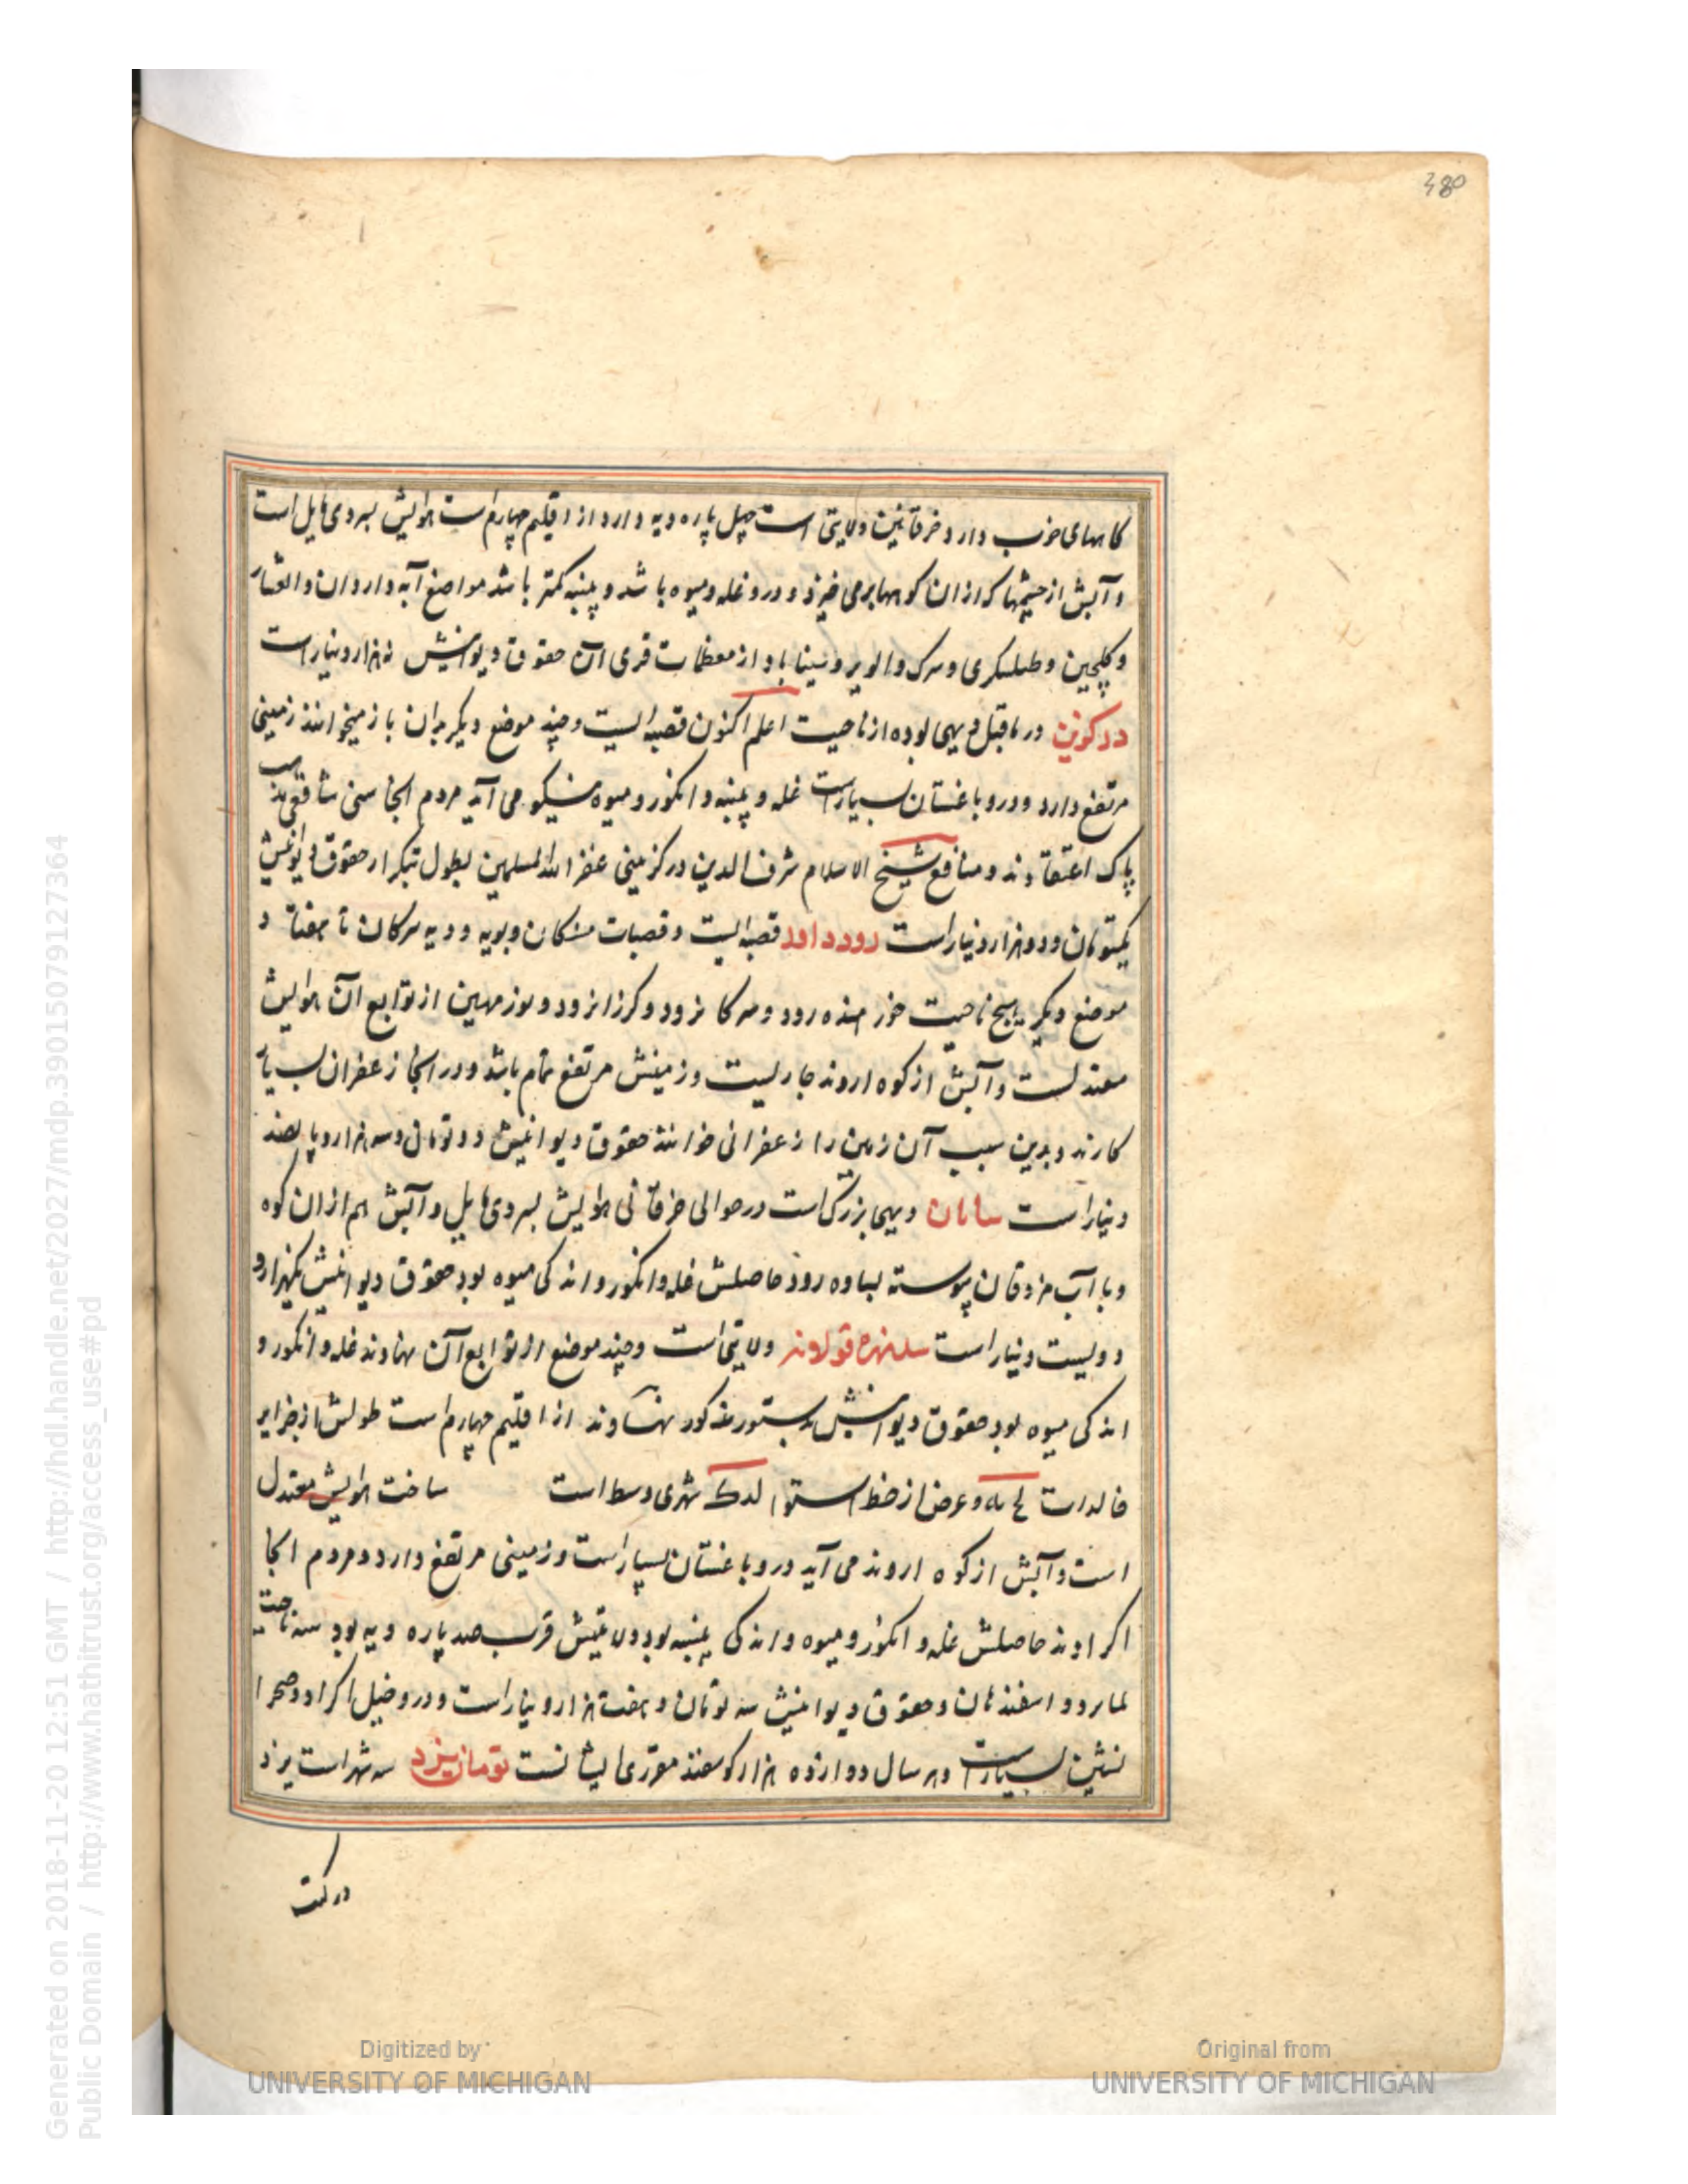 380
کاههای خوب دارد خرقانین ولایتی است چهل پاره دیه دارد از اقلیم چهارم است هوایش بسردی مایل است
و آبش از چشمها که از ان کوهها برمی خیزد و درو غله و میوه باشد و پنبه کمتر باشد مواضع آبه و اردان و
و کلجین و طبلشکری و سرک و الویر و سینا باد از معظمات قری آن حقوق دیوانیش نه هزار دینار است
درکزین در ماقبل دیهی بوده از ناحیت اعلم اکنون قصبه ایست و چند موضع دیگر بدان باز میخوانند زمینی
مرتفع دارد و درو باغستان بسیار است غله و پنبه و انگور و میوه نیکو می آید مردم انجا سنی شافعی مذهب
پاک اعتقادند و منافع شیخ الاسلام شرف الدین درکزینی عفر الله للمسلمین بطول تبکرار حقوق دیوانیش
یکتومان و دو هزار دینار است رود داود قصبه ایست و قصبات منکان و بویه و دیه سرکان تا هفتاد
موضع دیگر پنج ناحیت خور هنده رود و سرکا نرود و کرزانرود و بوزمهین از توابع آن هوایش
معتدلست و آبش از کوه اروند جاریست و زمینش مرتفع تمام باشد و در انجا زعفران بسیار
کارند و بدین سبب آن زمین را زعفرانی خوانند حقوق دیوانیش دو تومان و سه هزار و پانصد
دینار است سامان دیهی بزرگ است در حوالی خرقانی هوایش بسردی مایل و آبش هم از ان کوه
و با آب مزدقان پیوسته بساوه رود حاصلش غله و انگور و اندکی میوه بود حقوق دیوانیش یکهزار و
دویست دینار است ولایتی است و چند موضع از توابع آن نهاوند غله و انگور و
اندکی میوه بود حقوق دیوانیش بدستور مذکور نهاوند از اقلیم چهارم است طولش از جزایر
خالدات و عرض از خط استوا شهری وسط است ساخت هوایش معتدل
است و آبش از کوه اروند می آید درو باغستان بسیار است و زمینی مرتفع دارد و مردم انجا
اکرادند حاصلش غله و انگور و میوه و اندکی پنبه بود ولایتیش قرب صد پاره دیه بود سه ناحیت
و اسفندهان و حقوق دیوانیش سه تومان و هفت هزار دینار است و درو خیل اکراد و صحرا
نشین بسیار است و هر سال دوازده هزار گوسفند مقرری ایشانست تومان یزد سه شهر است یزد
Generated on 2018-11-20 12:51 GMT / http://hdl.handle.net/2027/mdp.39015079127364
Public Domain / http://www.hathitrust.org/access_use#pd
Digitized by
UNIVERSITY OF MICHIGAN
Original from
UNIVERSITY OF MICHIGAN